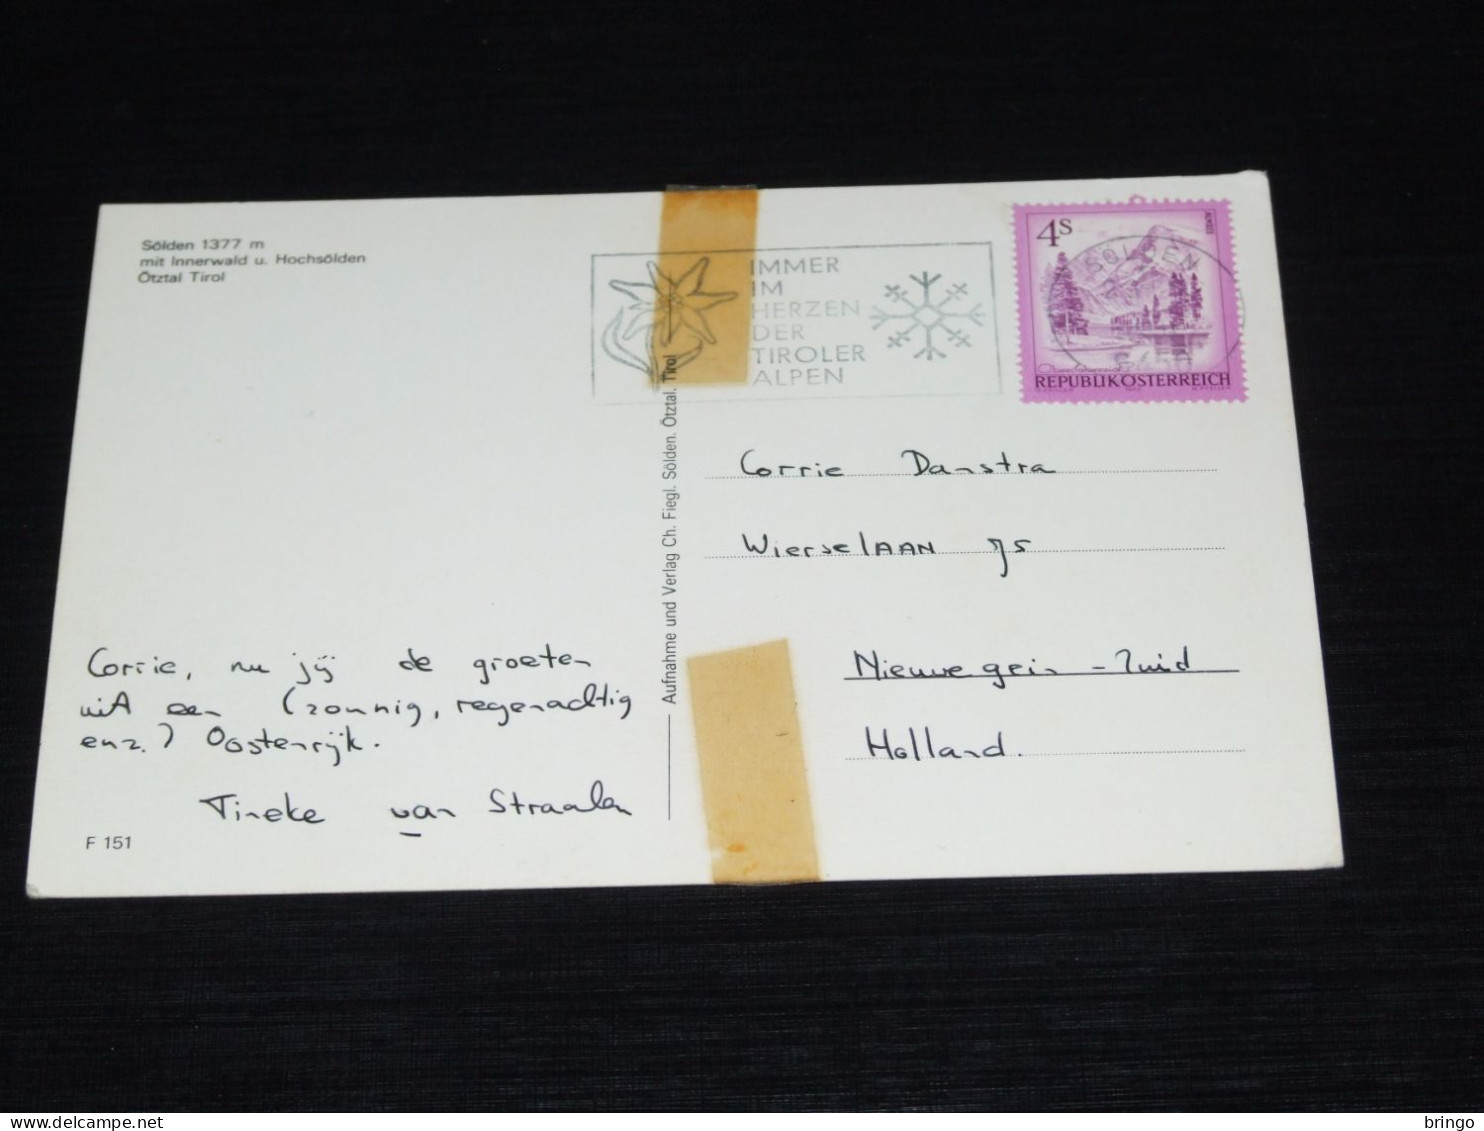 Sölden 1377 m
mit Innerwald u. Hochsölden
Ötztal Tirol
IMMER
IM
HERZEN
DER
TIROLER
ALPEN
4S
ALMSEE
SÖLDEN
6450
REPUBLIK ÖSTERREICH
Aufnahme und Verlag Ch. Fiegl. Sölden. Ötztal. Tirol
Corrie Damstra
WierselAAN 75
Nieuwegein - Zuid
Holland.
Corrie, nu jij de groeten
uit een (zonnig, regenachtig
enz.) Oostenrijk.
Tineke van Straalen
F 151
bringo